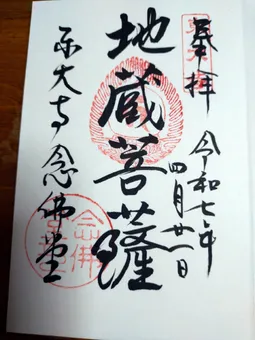 奉拝
令和七年
四月廿一日
地蔵菩薩
東大寺念佛堂